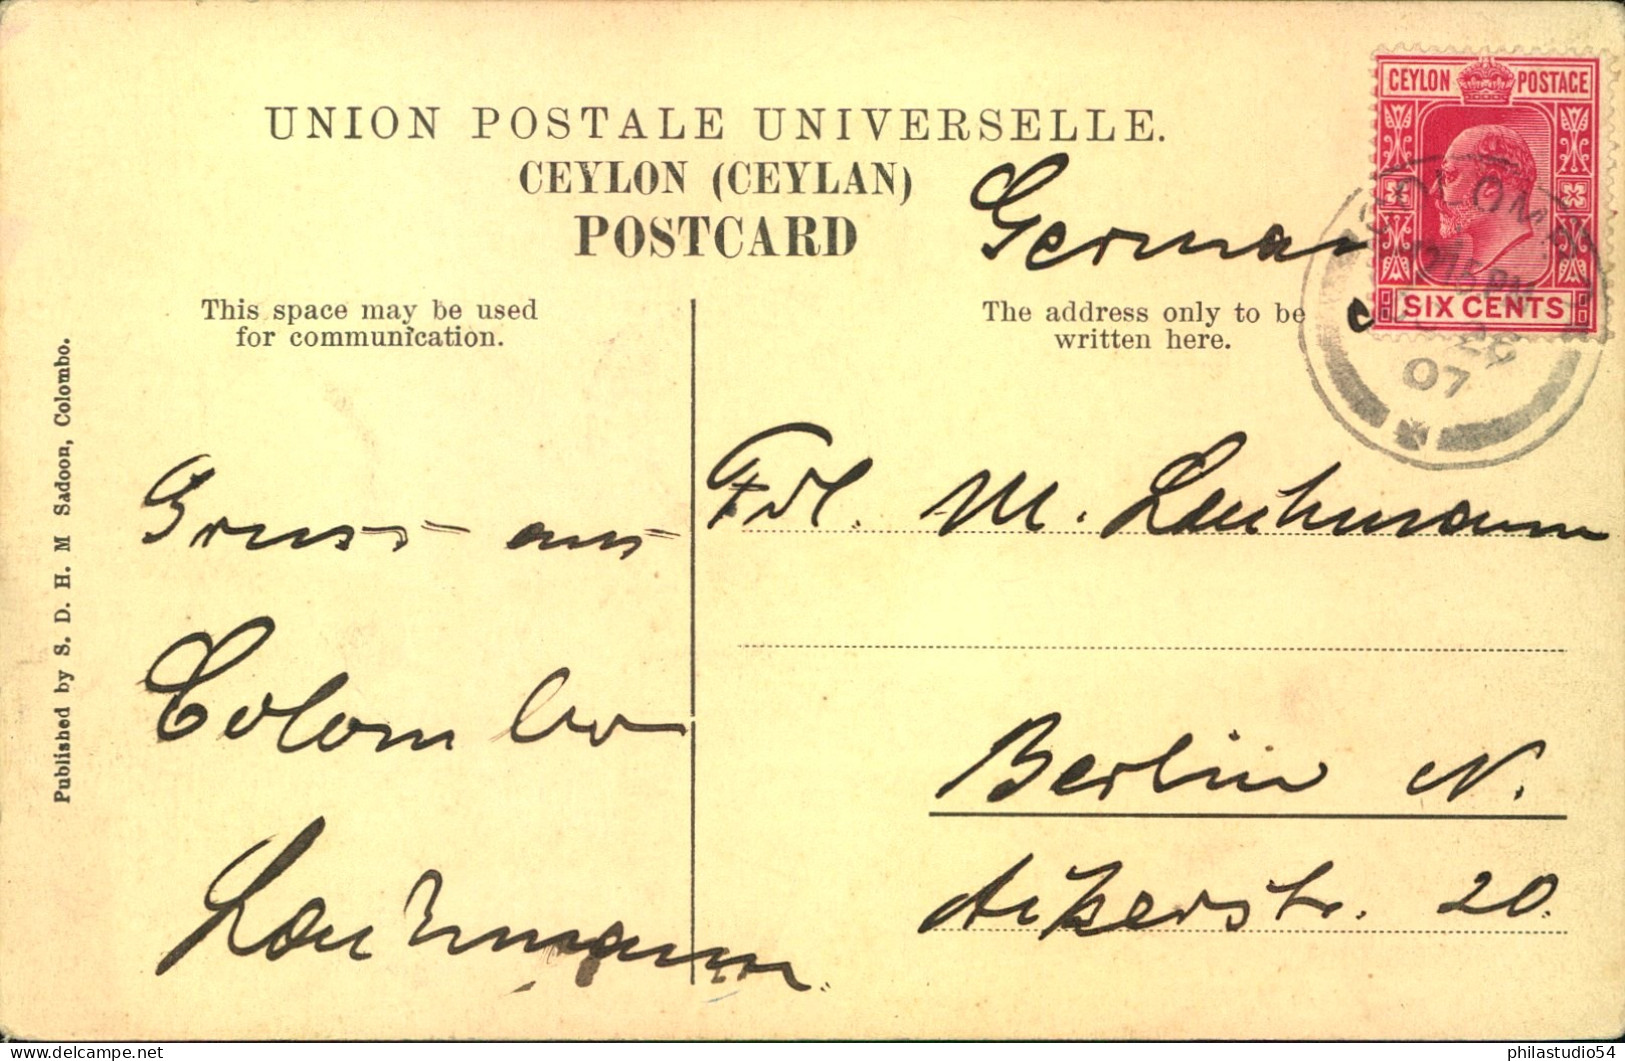 UNION POSTALE UNIVERSELLE.
CEYLON (CEYLAN)
POSTCARD
German
CEYLON POSTAGE
SIX CENTS
COLOMBO
2 15 PM
07
This space may be used
for communication.
The address only to be
written here.
Published by S. D. H. M Sadoon, Colombo.
Gruss aus
Colombo
Lauhmann
Frl. M. Lauhmann
Berlin N.
Ackerstr. 20.
philastudio54